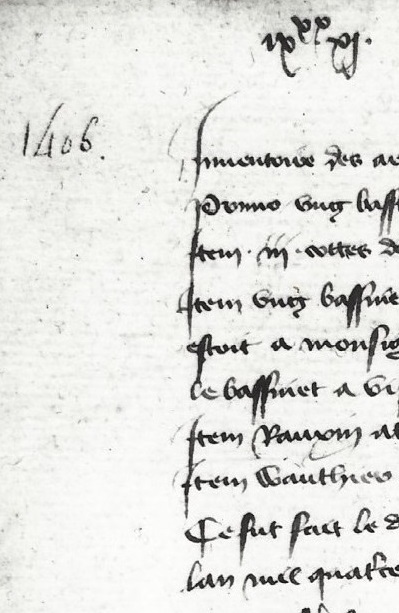 ixxx xj.
1406.
Inuentoire des ar
Primo ung bass
Item .iij. cottes de
Item ung bassine
estoit a monsig
le bassinet a vi
Item Rauxin at
Item Wauthier
Ce fut fait le d
lan mil quatre